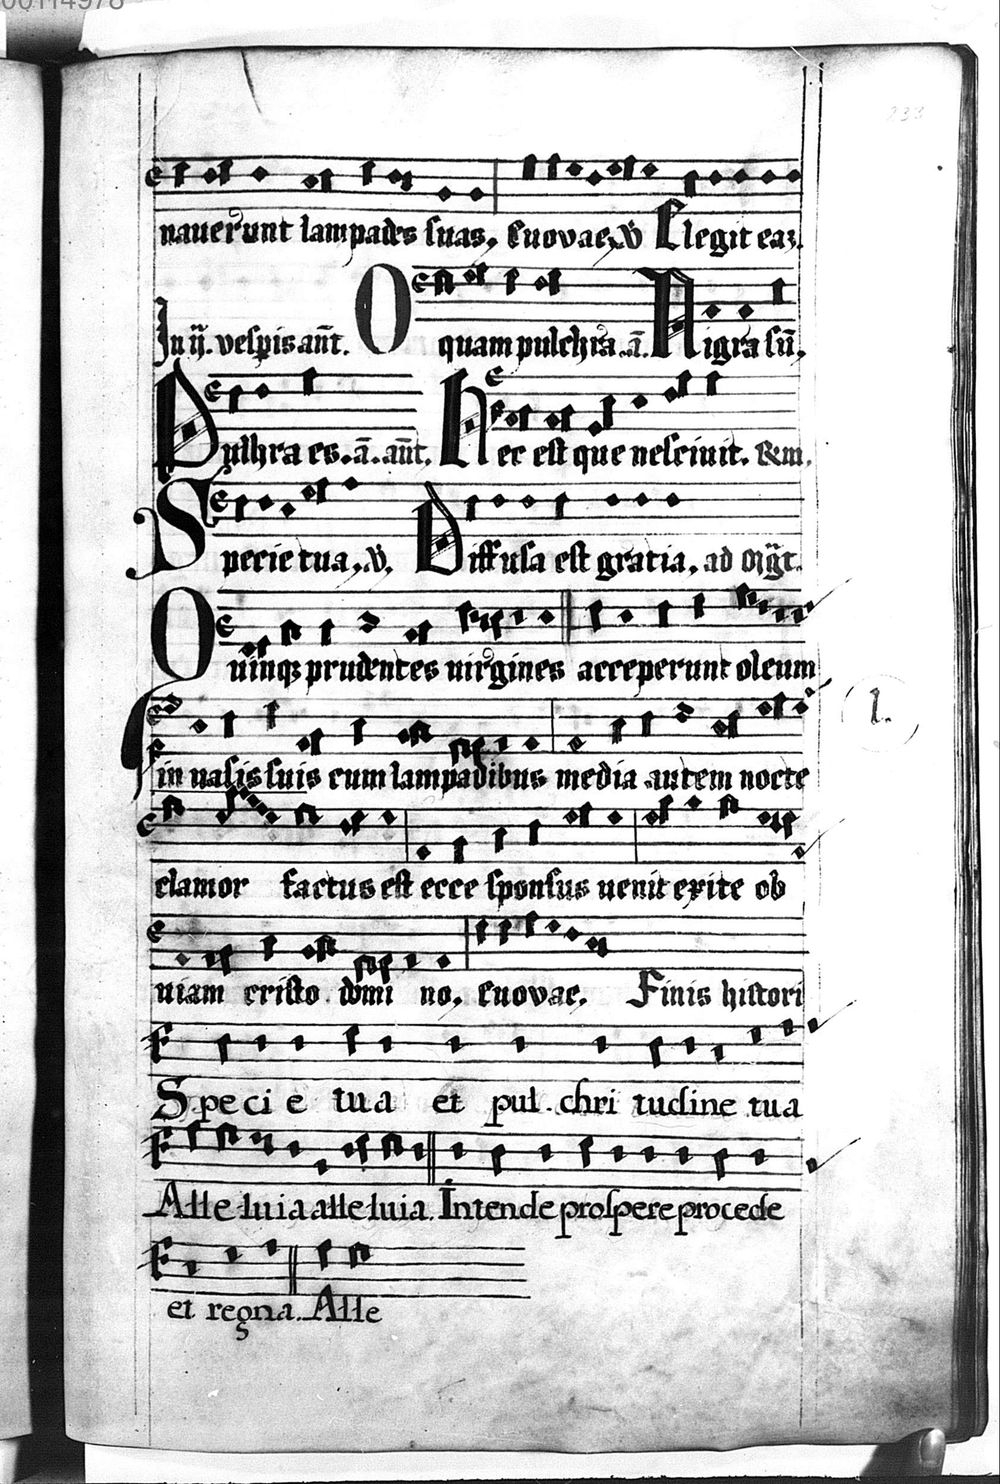 00114978
233
nauerunt lampades suas, Euovae, V Elegit eaz.
In ij. vespis ant. O quam pulchra. a. Nigra su.
Pulhra es. a. ant. Hec est que nesciuit. &m.
Specie tua, V, Diffusa est gratia, ad
Quinq; prudentes uirgines acceperunt oleum
1.
in uasis suis cum lampadibus media autem nocte
clamor factus est ecce sponsus uenit exite ob
uiam cristo domi no, Euovae, Finis histori
Specie tua et pul.chri tudine tua
Alle-luia alle-luia. Intende prospere procede
et regna. Alle